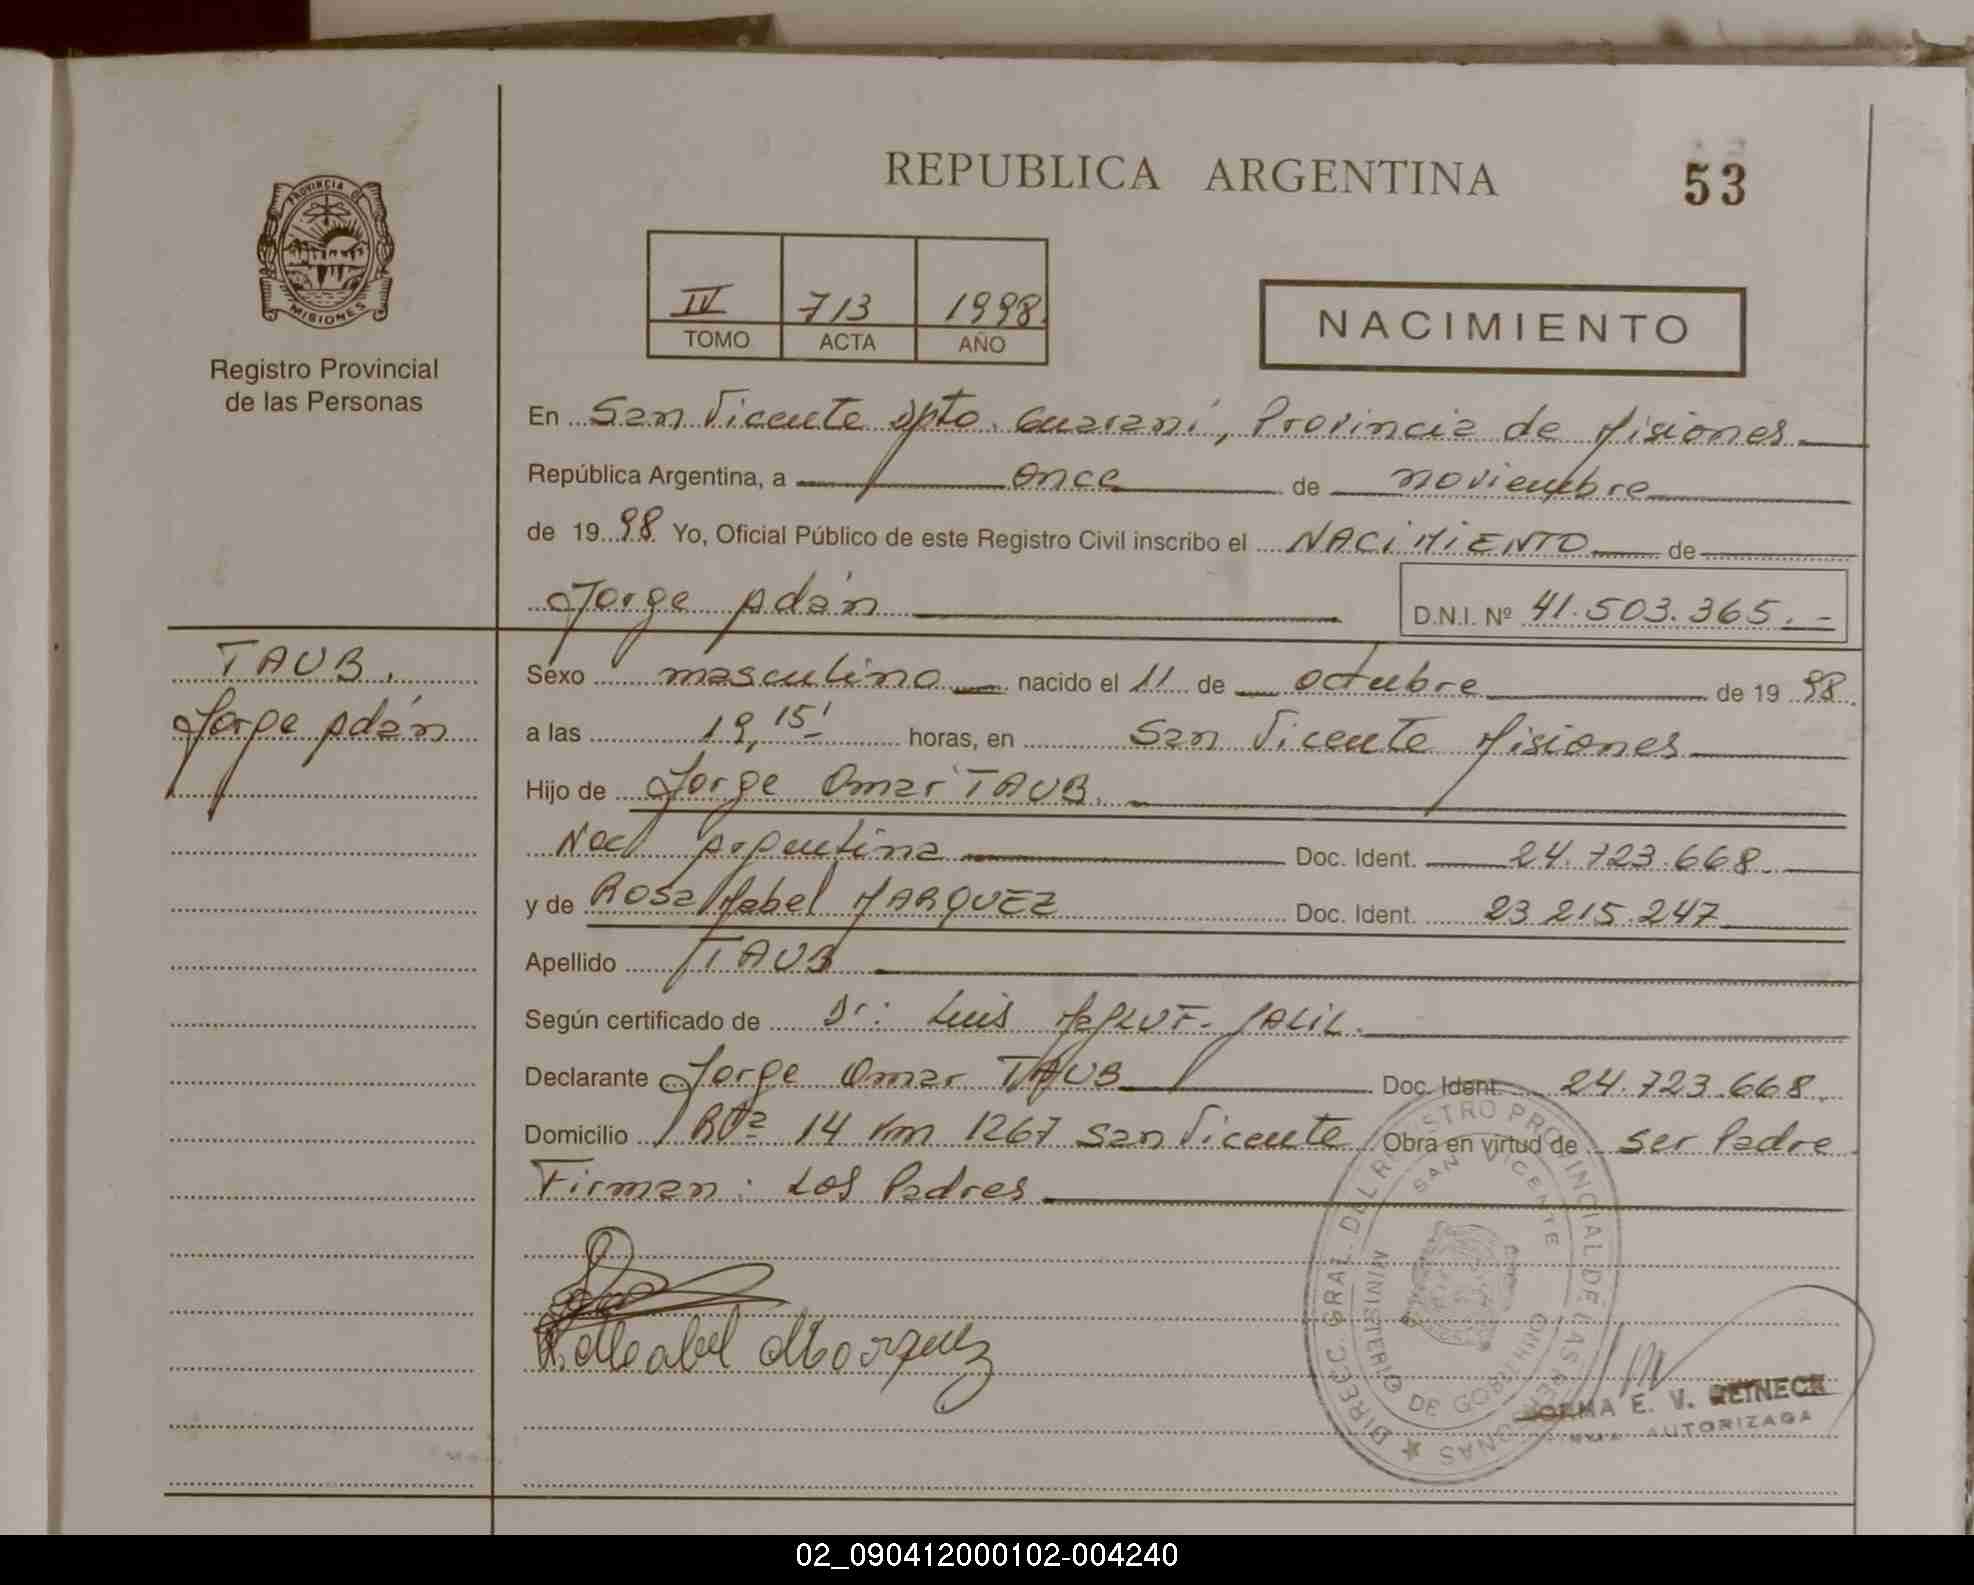 REPUBLICA ARGENTINA
53
PROVINCIA DE
MISIONES
Registro Provincial
de las Personas
IV 713 1998.
TOMO ACTA AÑO
NACIMIENTO
En San Vicente Dpto. Guaraní, Provincia de Misiones
República Argentina, a once de noviembre
de 1998 Yo, Oficial Público de este Registro Civil inscribo el NACIMIENTO de
Jorge Adán
D.N.I. Nº 41.503.365.-
TAUB,
Jorge Adán
Sexo masculino nacido el 11 de octubre de 1998.
a las 19,15' horas, en San Vicente Misiones
Hijo de Jorge Omar TAUB.
Nac. Argentina Doc. Ident. 24.723.668.
y de Rosa Mabel MARQUEZ Doc. Ident. 23 215.247
Apellido TAUB
Según certificado de Dr: Luis JALIL.
Declarante Jorge Omar TAUB Doc. Ident. 24.723.668.
Domicilio Rta 14 Km 1267 San Vicente Obra en virtud de ser Padre
Firman: Los Padres
R. Mabel Marquez
DIRECC. GRAL. DEL REGISTRO PROVINCIAL DE LAS PERSONAS
SAN VICENTE
MINISTERIO DE GOBIERNO
E. V. REINECK
AUTORIZADA
02_090412000102-004240